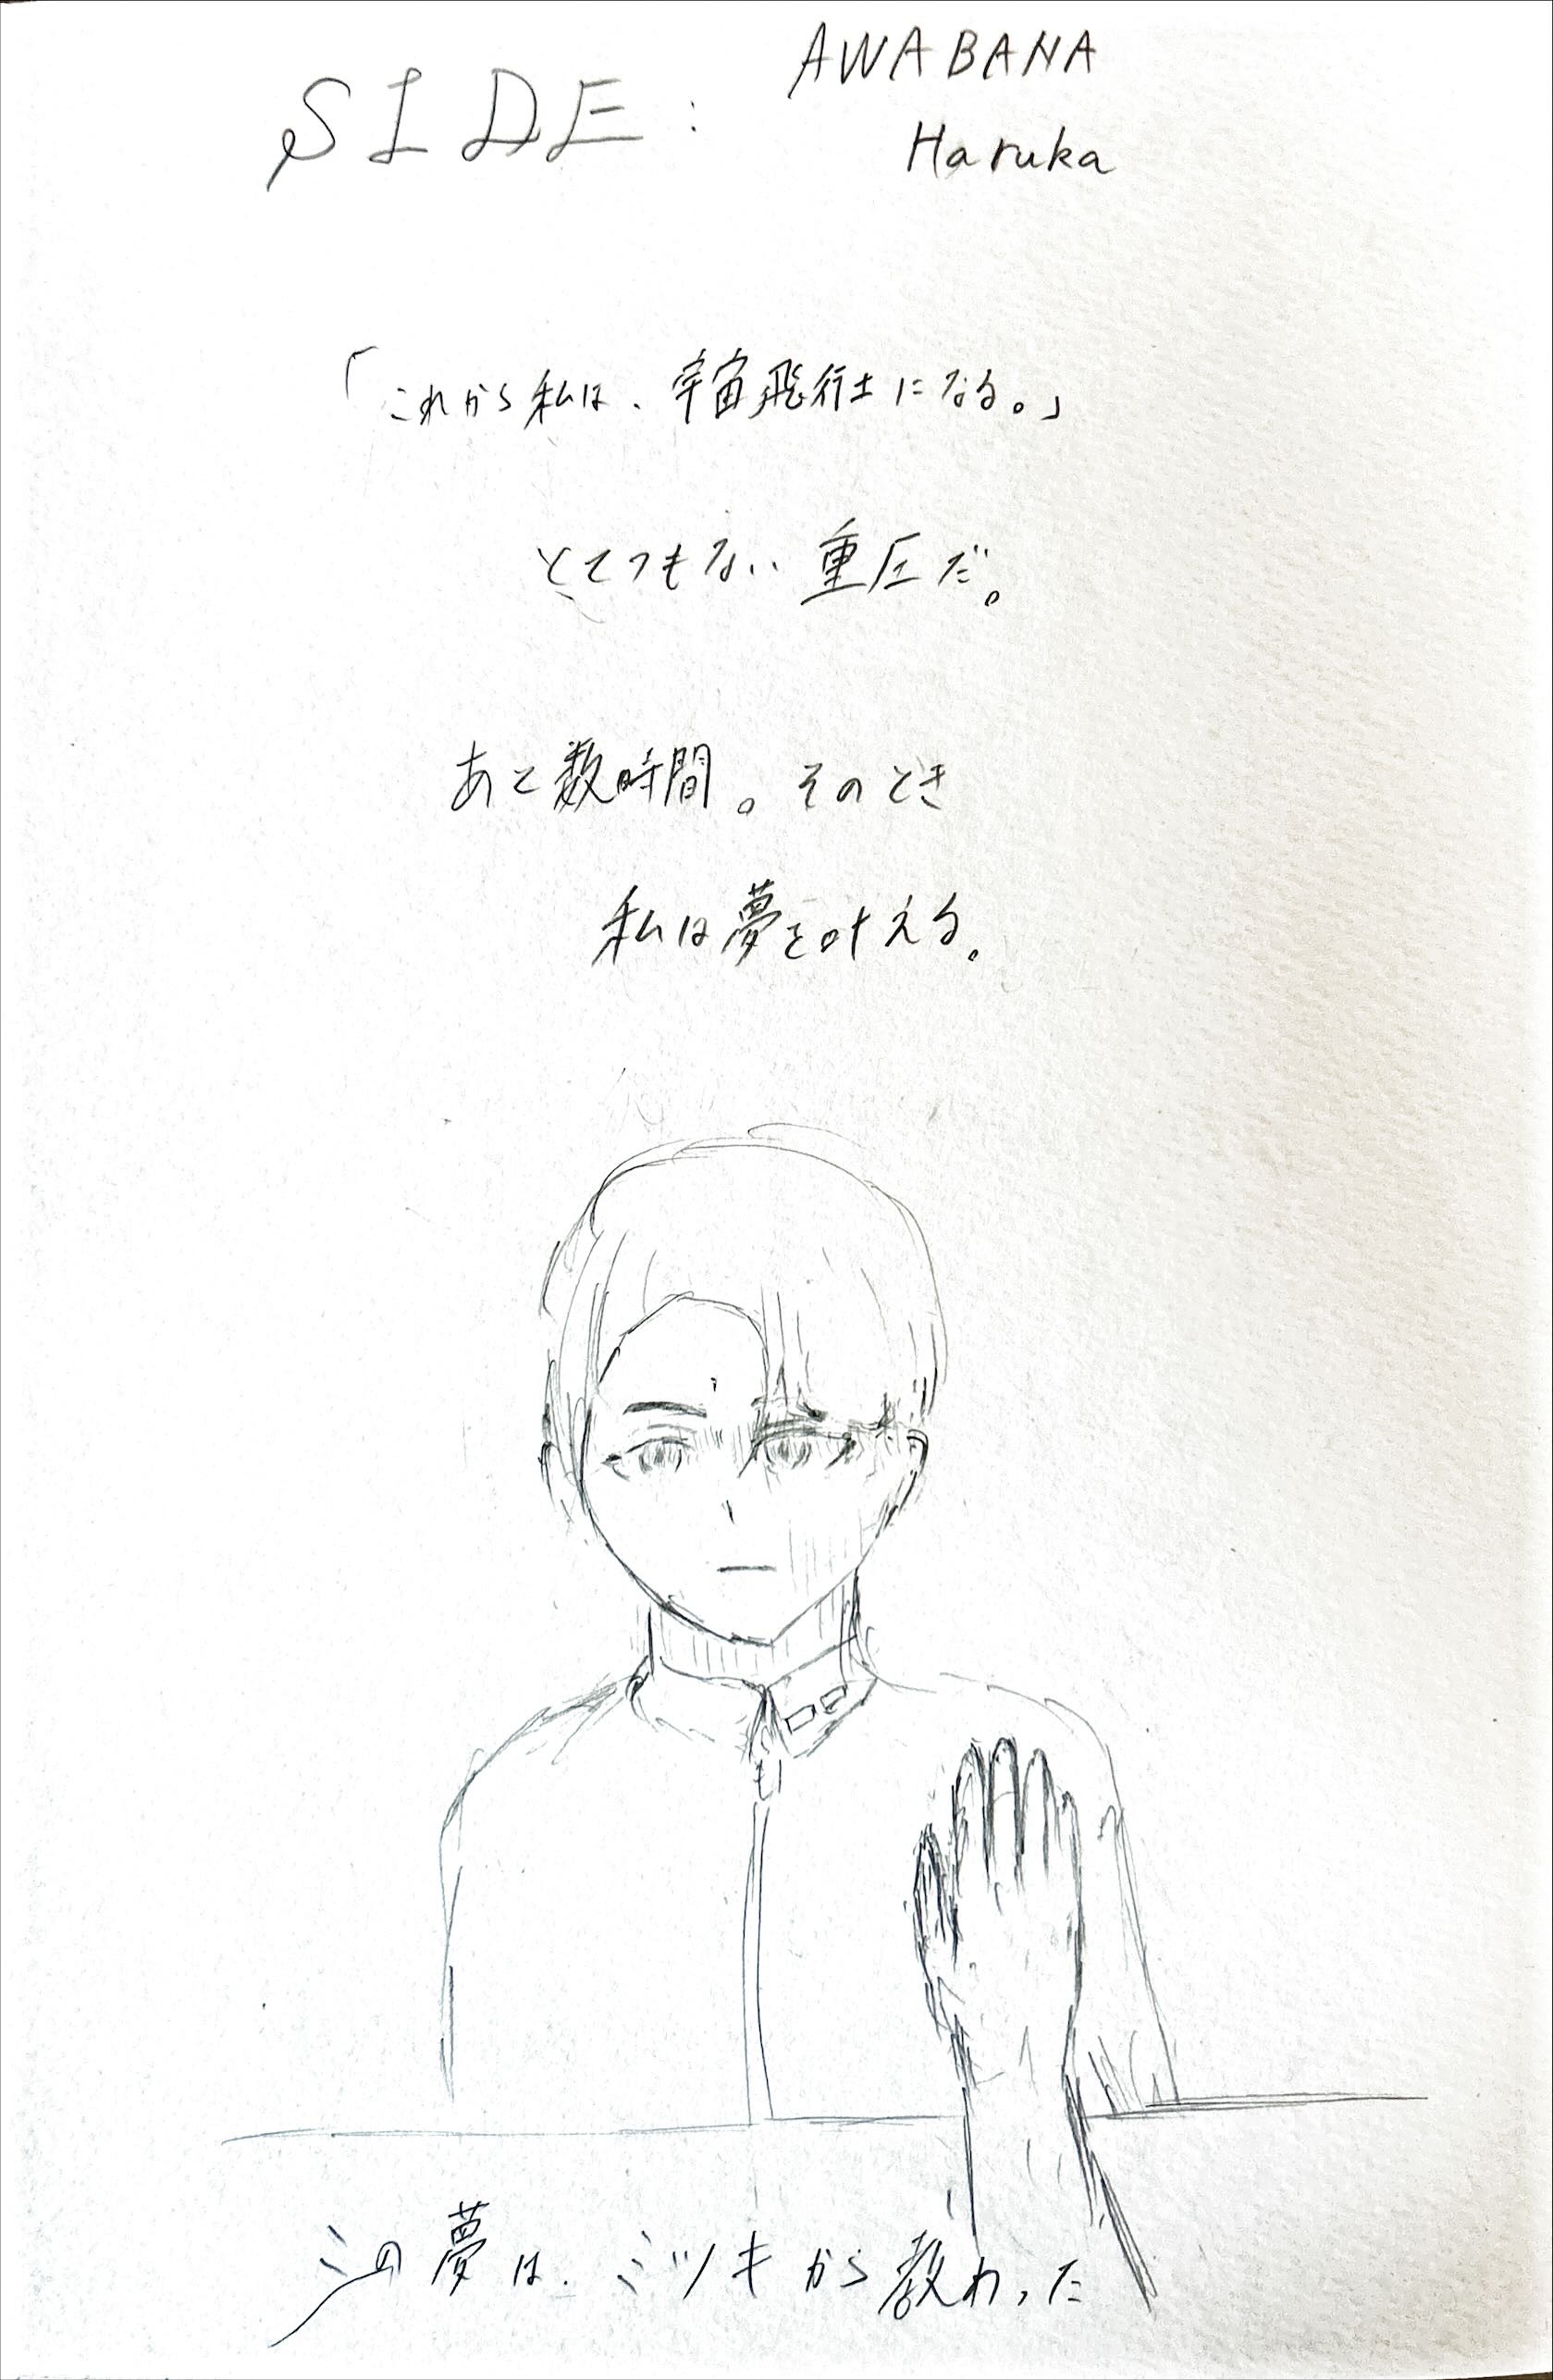 SIDE: AWABANA
Haruka
「これから私は、宇宙飛行士になる。」
とてつもない重圧だ。
あと数時間。そのとき
私は夢を叶える。
この夢は、ミツキから教わった